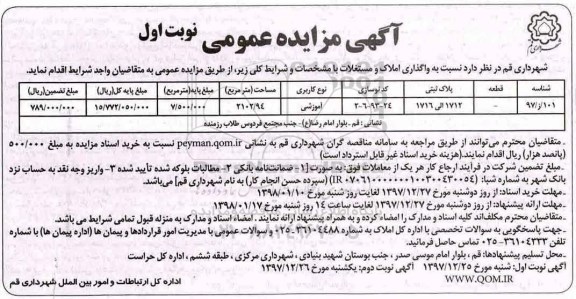 آگهی مزایده عمومی
نوبت اول
شهرداری قم در نظر دارد نسبت به واگذاری املاک و مستغلات با مشخصات و شرایط کلی زیر، از طریق مزایده عمومی به متقاضیان واجد شرایط اقدام نماید.
شناسه قطعه پلاک ثبتی کد نوسازی نوع کاربری مساحت(مترمربع) مبلغ پایه(مترمربع) مبلغ پایه کل(ریال) مبلغ تضمین(ریال)
۱۰۱/ز/۹۷ - ۱۷۱۲ الی ۱۷۱۶ ۲-۶-۹۳-۲۴ آموزشی ۲۱۰۲/۹۴ ۷/۵۰۰/۰۰۰ ۱۵/۷۷۲/۰۵۰/۰۰۰ ۷۸۹/۰۰۰/۰۰۰
نشانی: قم- بلوار امام رضا(ع)- جنب مجتمع فردوس طلاب رزمنده
ـ متقاضیان محترم می‌توانند از طریق مراجعه به سامانه مناقصه گران شهرداری قم به نشانی peyman.qom.ir نسبت به خرید اسناد مزایده به مبلغ ۵۰۰/۰۰۰
(پانصد هزار) ریال اقدام نمایند.(هزینه خرید اسناد غیر قابل استرداد است)
ـ مبلغ تضمین شرکت در فرآیند ارجاع کار هر یک از معاملات فوق: به صورت [۱- ضمانتنامه بانکی ۲- مطالبات بلوکه شده تأیید شده ۳- واریز وجه نقد به حساب نزد
بانک شهر به شماره شبا: (سپرده حسن انجام کار) به نام شهرداری قم] می‌باشد.
ـ مهلت خرید اسناد: از روز دوشنبه مورخ ۱۳۹۷/۱۲/۲۷ لغایت روز شنبه مورخ ۱۳۹۸/۰۱/۱۰
ـ مهلت ارائه پیشنهاد: از روز دوشنبه مورخ ۱۳۹۷/۱۲/۲۷ لغایت ساعت ۱۴ روز شنبه مورخ ۱۳۹۸/۰۱/۱۷
ـ متقاضیان محترم مکلف‌اند کلیه اسناد و مدارک را امضاء کرده و به همراه پیشنهاد ارائه نمایند. امضاء اسناد و مدارک به منزله قبول تمامی شرایط می‌باشد.
ـ جهت پاسخگویی به سوالات تخصصی با اداره کل املاک به شماره ۳۶۱۰۴۴۸۸-۰۲۵ و سوالات عمومی با مدیریت امور قراردادها و پیمان ها (اداره پیمان ها) با شماره
تلفن ۳۶۱۰۴۲۳۳-۰۲۵ تماس حاصل فرمائید.
ـ محل تسلیم پیشنهادها: قم، بلوار امام موسی صدر، جنب بوستان شهید بنیادی، شهرداری مرکزی، طبقه ششم، اداره کل حراست
آگهی نوبت اول: شنبه مورخ ۱۳۹۷/۱۲/۲۵ آگهی نوبت دوم: یکشنبه مورخ ۱۳۹۷/۱۲/۲۶
WWW.QOM.IR
اداره کل ارتباطات و امور بین الملل شهرداری قم